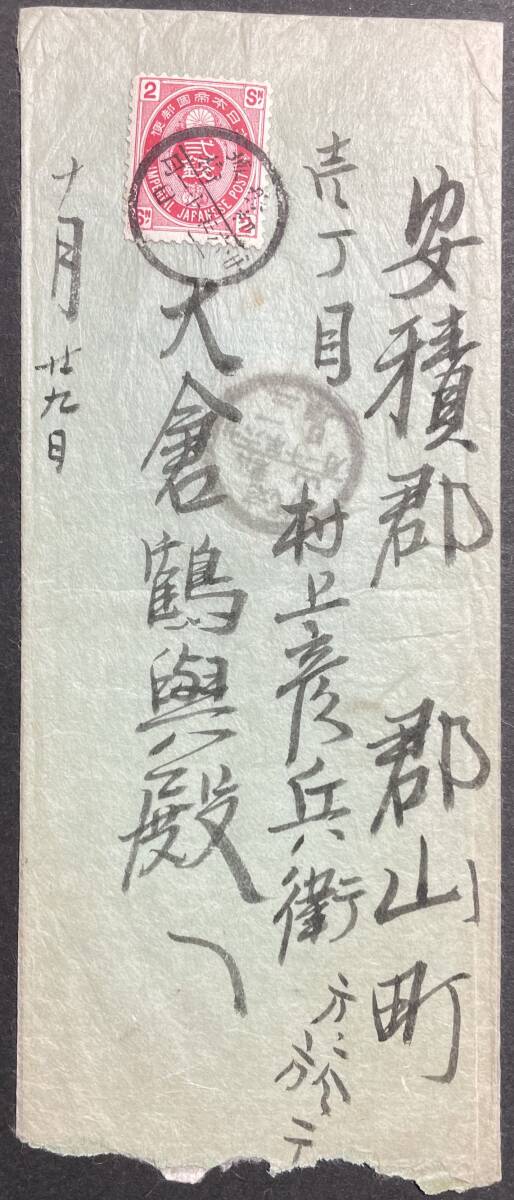 安積郡 郡山町
壱丁目
村上彦兵衛
方ニ於テ
大倉鶴與殿
十月廿九日
2 SN
大日本帝國郵便
貳錢
IMPERIAL JAPANESE POST
SN 2